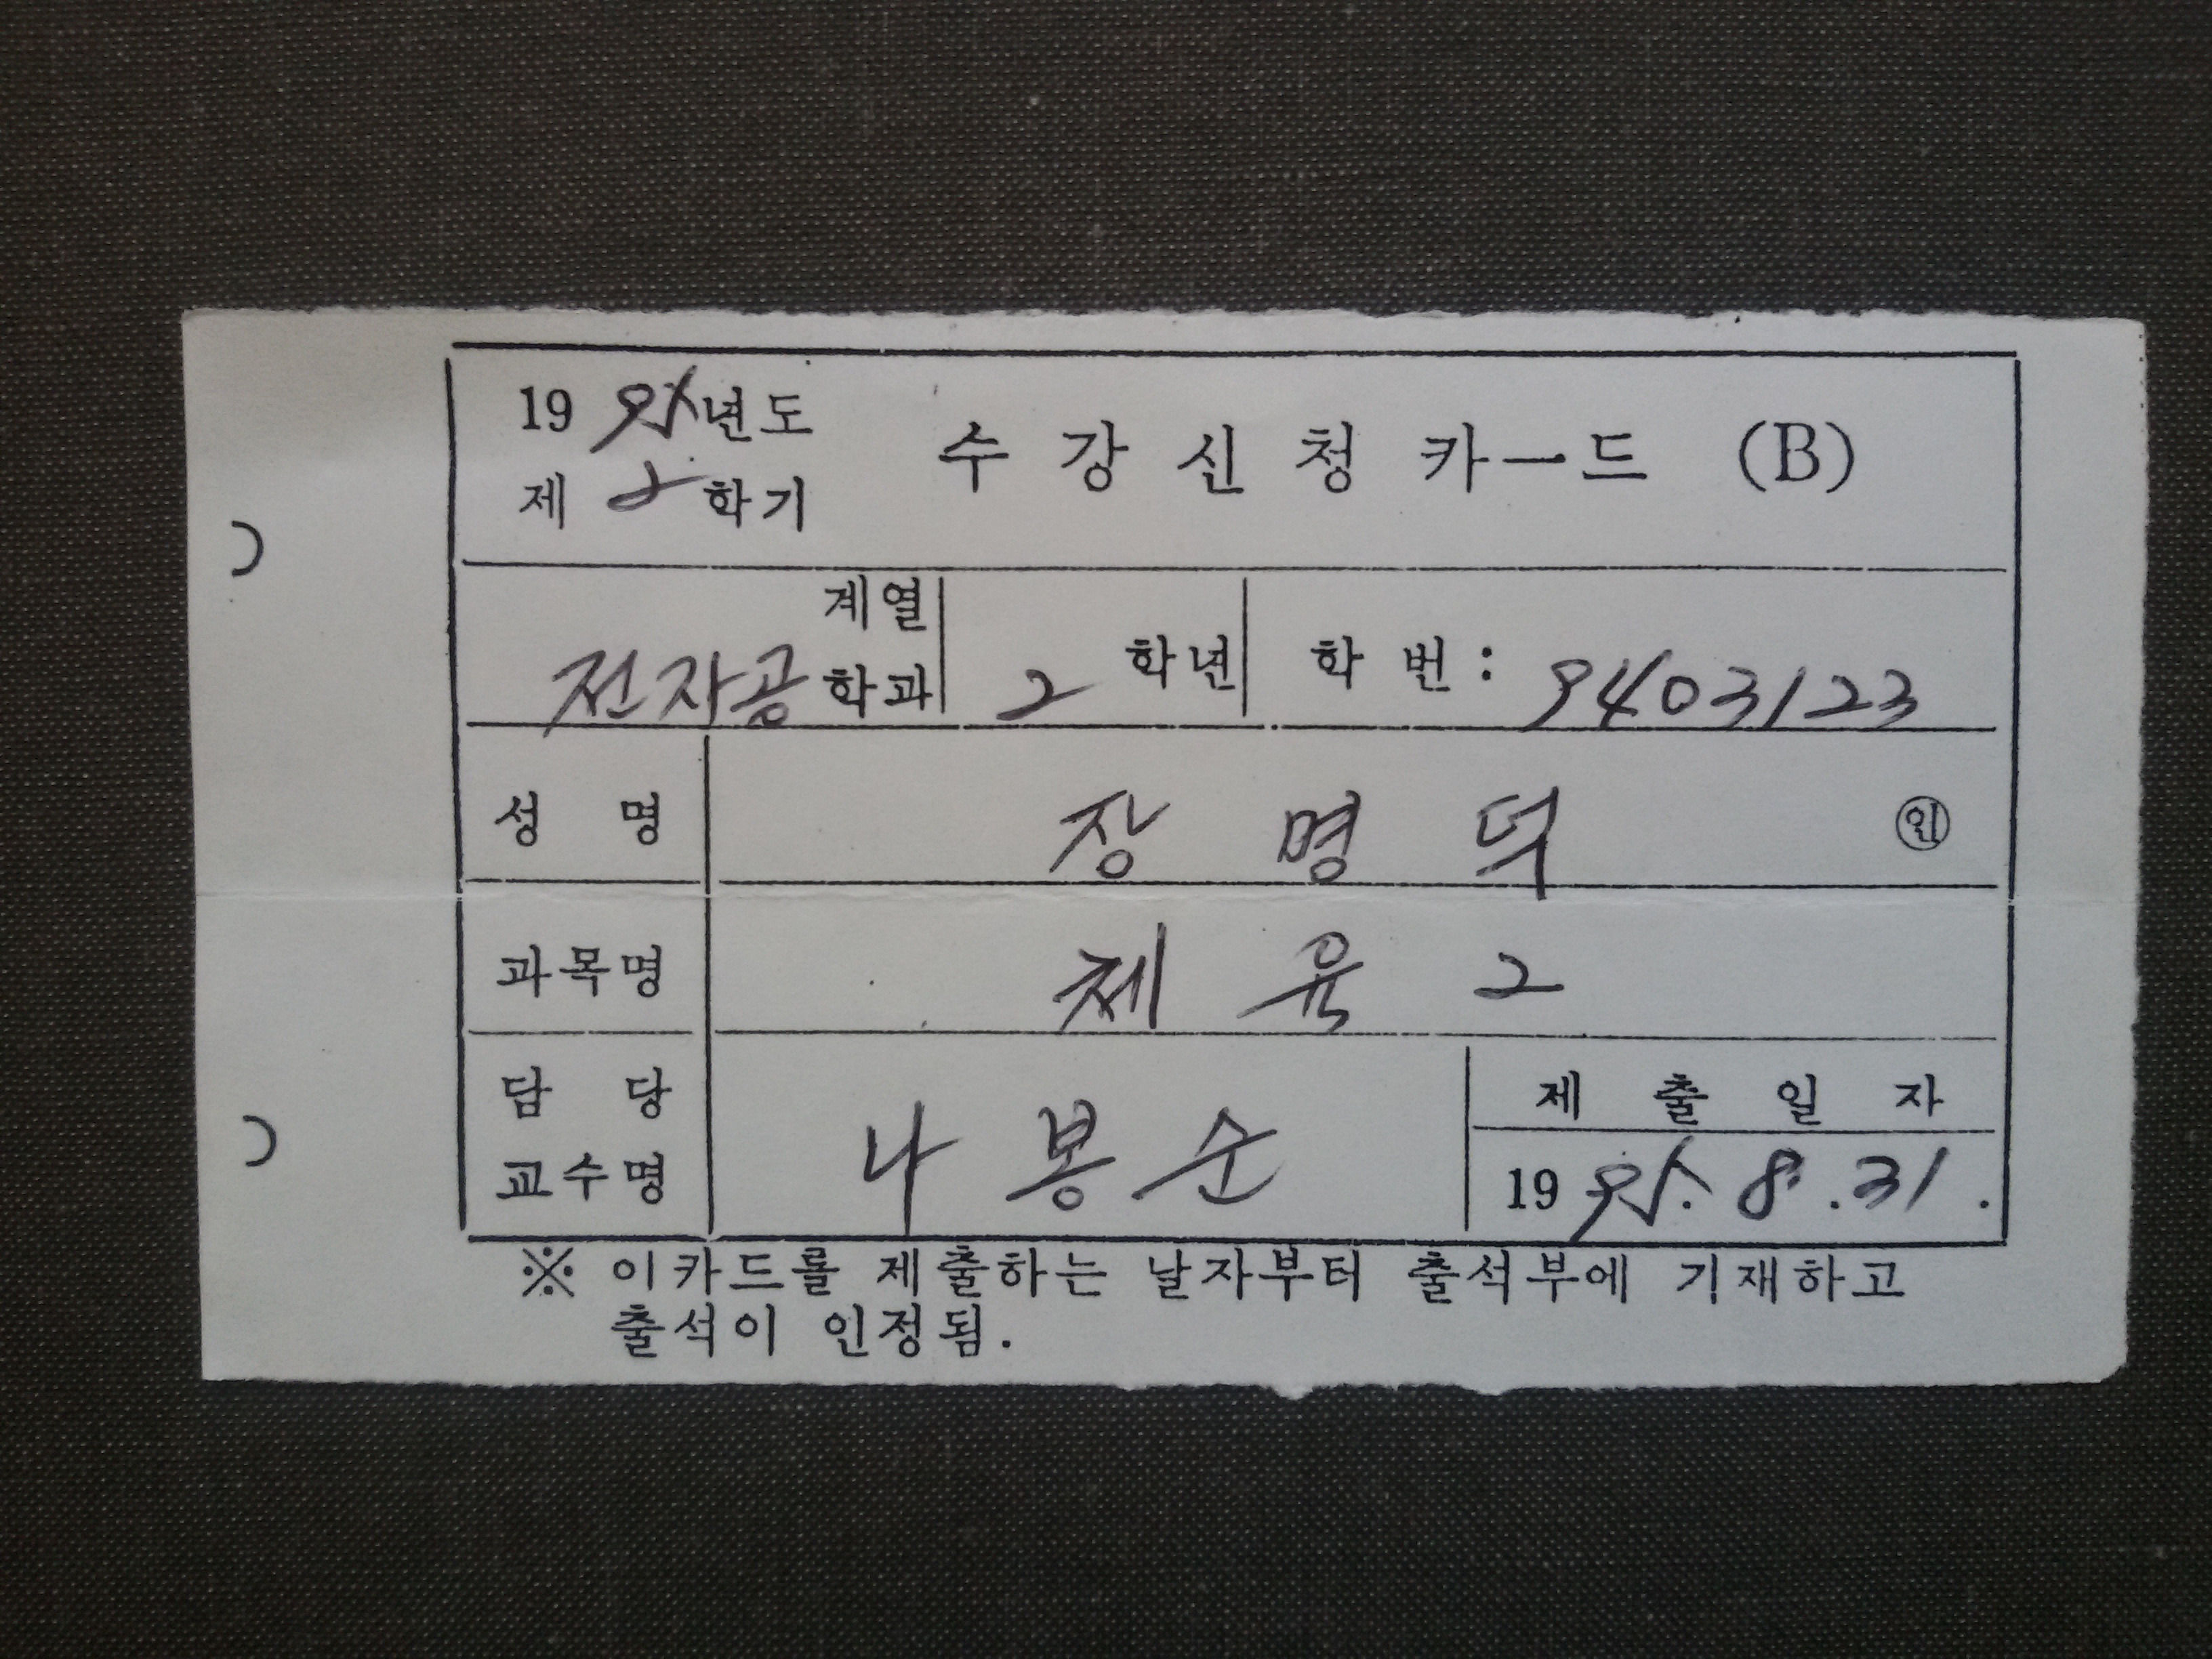 1995년도
제 2 학기
수강신청카ー드 (B)
계열
전자공 학과 2 학년 학번: 9403123
성명 장명덕 ㊞
과목명 체육 2
담당
교수명 나봉순
제출일자
1995. 8. 31.
※ 이카드를 제출하는 날자부터 출석부에 기재하고
출석이 인정됨.